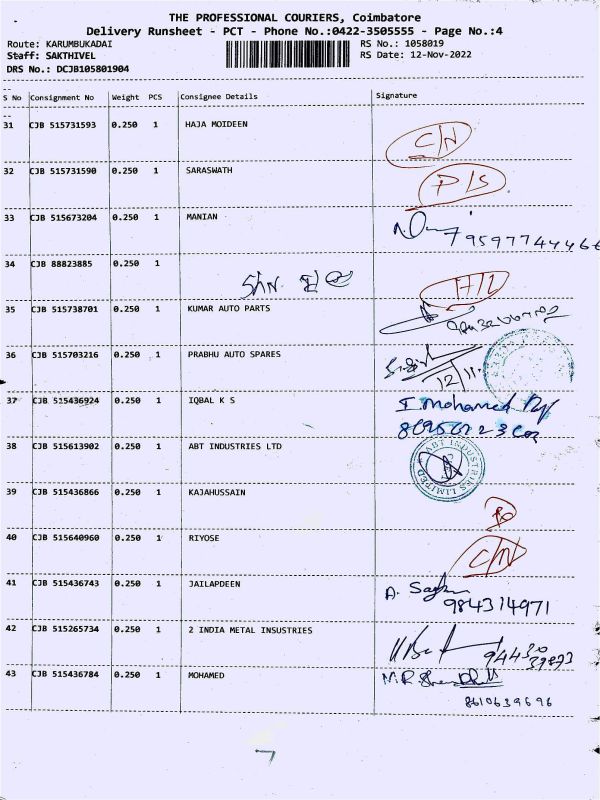 THE PROFESSIONAL COURIERS, Coimbatore
Delivery Runsheet - PCT - Phone No.:0422-3505555 - Page No.:4
Route: KARUMBUKADAI
RS No.: 1058019
Staff: SAKTHIVEL
RS Date: 12-Nov-2022
DRS No.: DCJB105801904
S No Consignment No Weight PCS Consignee Details Signature
31 CJB 515731593 0.250 1 HAJA MOIDEEN C/N
32 CJB 515731590 0.250 1 SARASWATH P/S
33 CJB 515673204 0.250 1 MANIAN 9597744466
34 CJB 88823885 0.250 1
35 CJB 515738701 0.250 1 KUMAR AUTO PARTS
36 CJB 515703216 0.250 1 PRABHU AUTO SPARES
12/11
37 CJB 515436924 0.250 1 IQBAL K S I. Mohamed
38 CJB 515613902 0.250 1 ABT INDUSTRIES LTD ABT INDUSTRIES LIMITED
39 CJB 515436866 0.250 1 KAJAHUSSAIN
40 CJB 515640960 0.250 1 RIYOSE C/N
41 CJB 515436743 0.250 1 JAILAPDEEN A.
984314971
42 CJB 515265734 0.250 1 2 INDIA METAL INSUSTRIES
94430
39893
43 CJB 515436784 0.250 1 MOHAMED M.R
8610639696
7